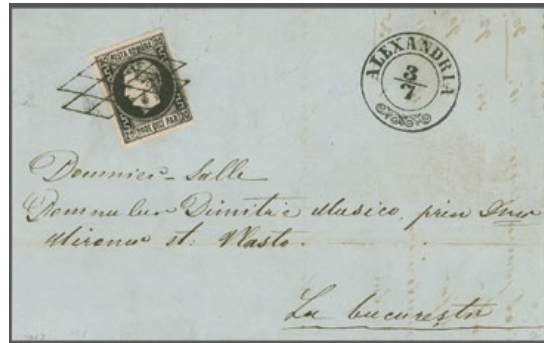 POSTA ROMANA
DOUE DECI PAR
ALEXANDRIA
3/7
Domniei-Salle
Domnului Dimitrie Musico, prin
Mironu st: Vlasto.
La bucuresta